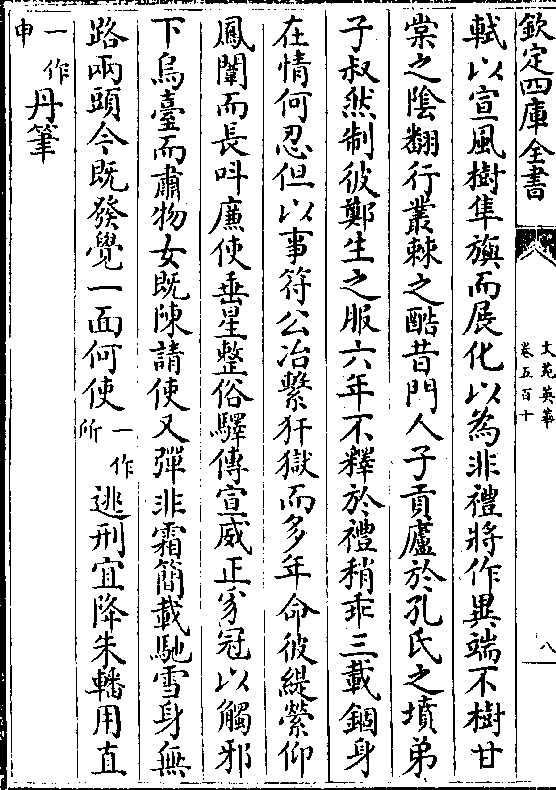 欽定四庫全書
文苑英華
卷五百十
八
軾以宣風樹隼旟而展化以為非禮將作異端不樹甘
棠之陰翻行叢棘之酷昔門人子貢廬於孔氏之墳弟
子叔然制彼鄭生之服六年不釋於禮稍乖三載錮身
在情何忍但以事符公冶繫犴獄而多年命彼緹縈仰
鳳闈而長叫廉使垂星整俗驛傳宣威正豸冠以觸邪
下烏臺而肅物女既陳請使又彈非霜簡載馳雪身無
路兩頭今既發覺一面何使一作所逃刑宜降朱轓用直
一作申丹筆